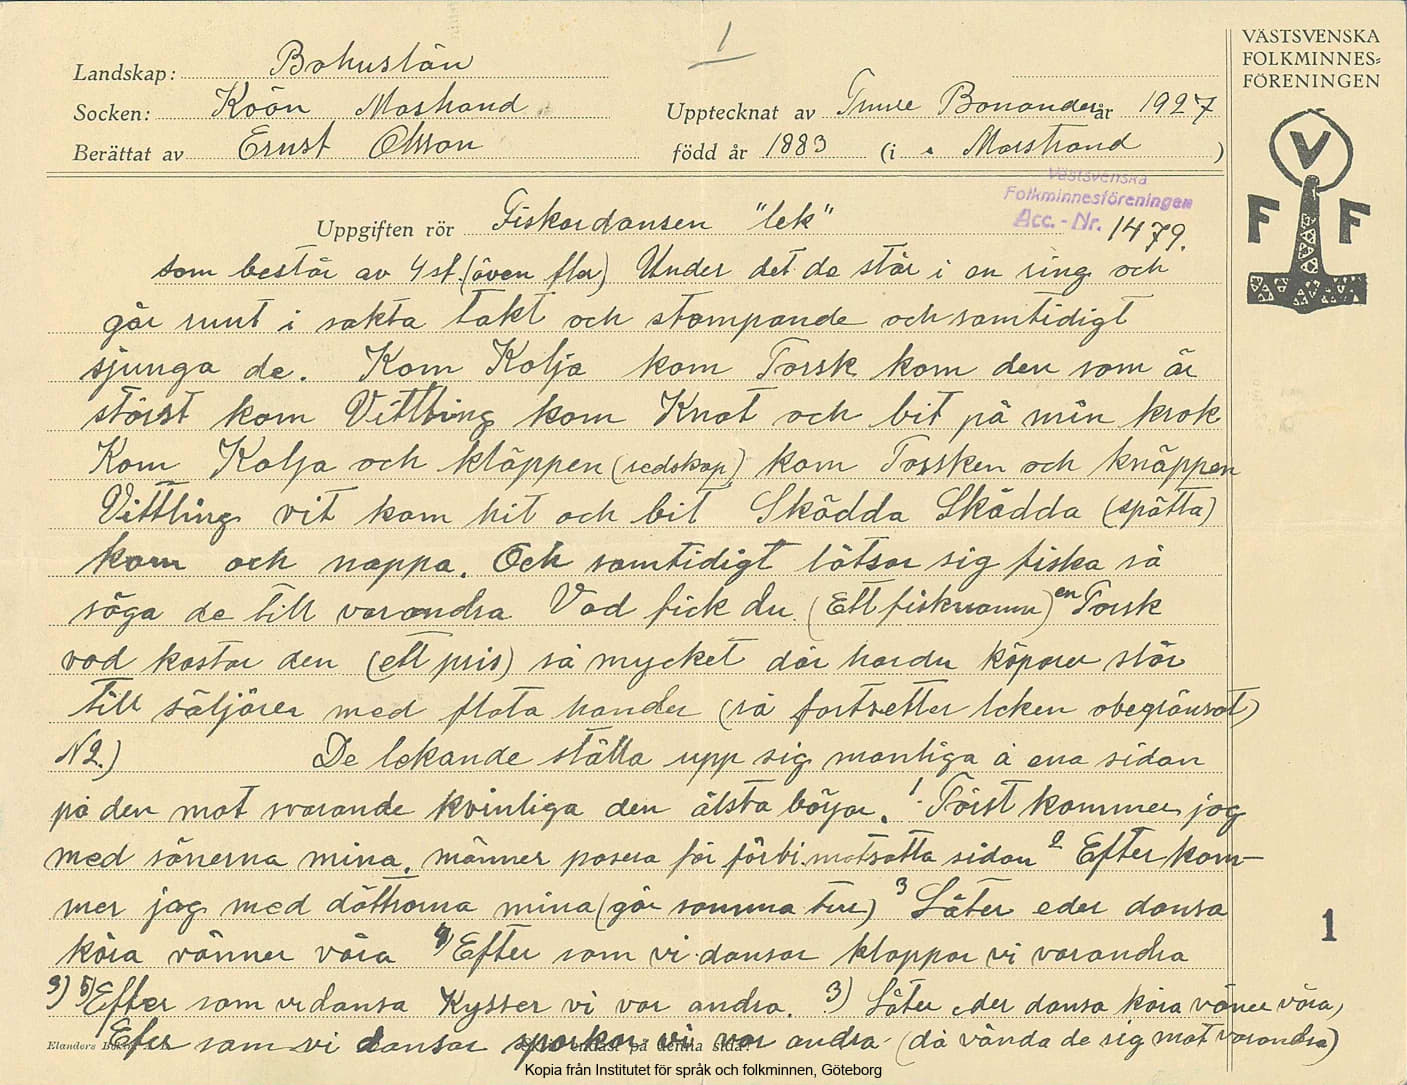 1
Landskap: Bohuslän
Socken: Koön Mastrand
Upptecknat av Bonander år 1927
Berättat av Ernst Olsson
född år 1883 (i Marstrand)
VÄSTSVENSKA
FOLKMINNES=
FÖRENINGEN
V
F F
Västsvenska
Folkminnesföreningen
Acc. - Nr. 1479.
Uppgiften rör Fiskardansen "lek"
som består av 4 st. (även fler) Under det de står i en ring och
går runt i sakta takt och stampande och samtidigt
sjunga de. Kom Kolja kom Torsk kom den som är
störst kom Vittling kom Knot och bit på min krok
Kom Kolja och kläppen (redskap) kom Torsken och knäppen
Vittling vit kom hit och bit Skädda Skädda (spätta)
kom och nappa. Och samtidigt låtsar sig fiska så
säga de till varandra Vad fick du. (Ett fisknamn) en Torsk
vad kostar den (ett pris) så mycket där hardu köparer slår
till säljärer med flata hander (så fortsetter leken obegränsat)
N2.) De lekande ställa upp sig manliga å ena sidan
på den mot svarande kvinliga den älsta börjar. 1. Först kommer jag
med sönerna mina. männer pasera för förbi motsatta sidan 2 Efter kom-
mer jag med döttrarna mina (går samma tur) 3 Låter eder dansa
kära vänner våra 4) Efter som vi dansar klappar vi varandra
3) 5) Efter som vi dansa Kysser vi var andra. 3) Låter eder dansa kära väner våra,
Efter som vi dansar sparkar vi var andra (då vända de sig mot varandra)
Elanders
endast på denna sida!
1
Kopia från Institutet för språk och folkminnen, Göteborg